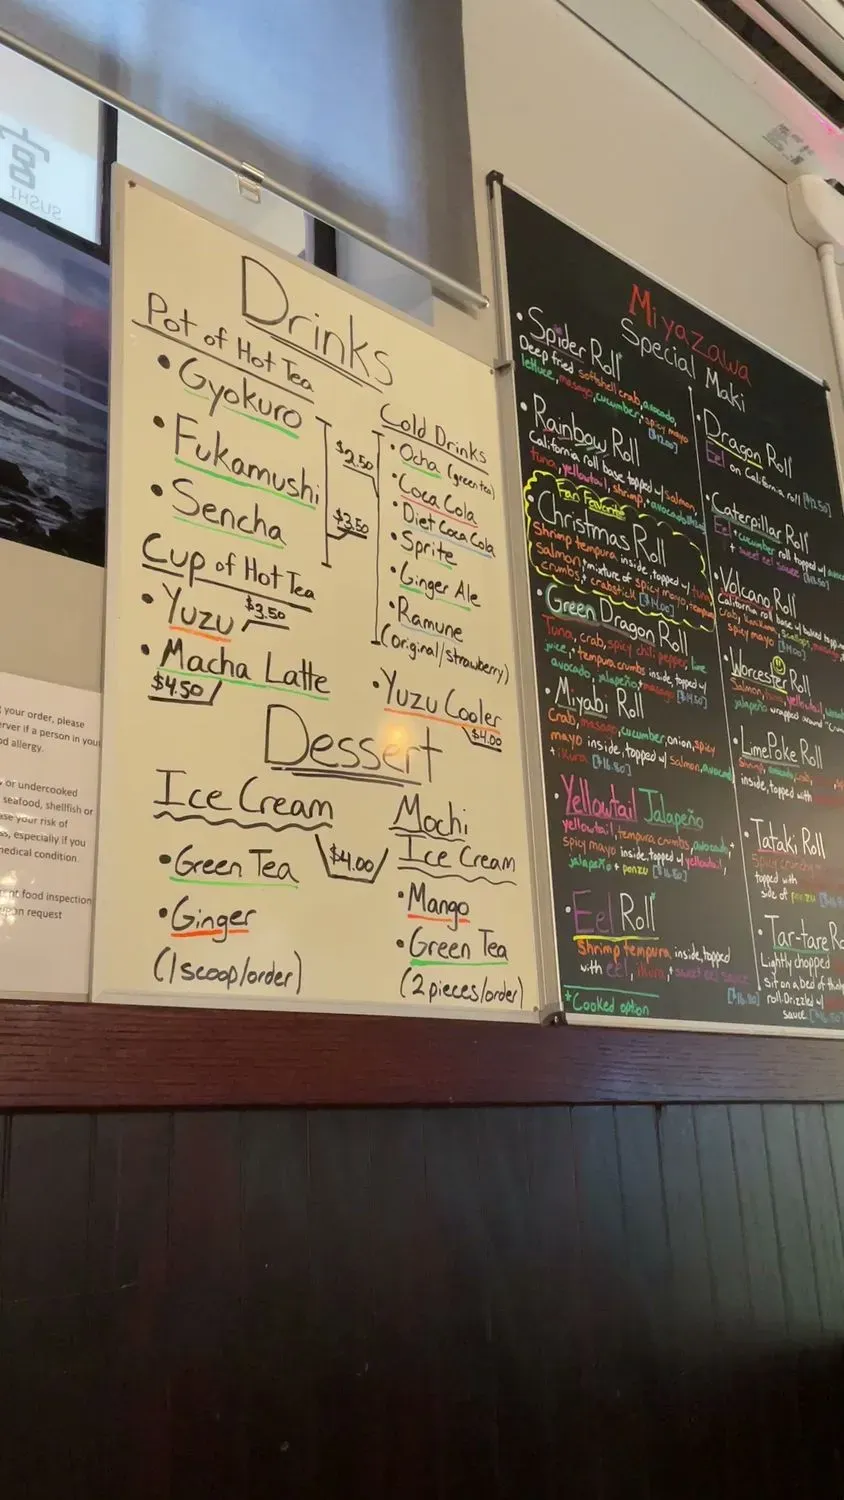 SUSHI
your order, please
erver if a person in your
d allergy.
or undercooked
seafood, shellfish or
ase your risk of
ss, especially if you
medical condition.
food inspection
upon request
Drinks
Pot of Hot Tea
• Gyokuro
• Fukamushi
• Sencha
$3.50
Cup of Hot Tea
• Yuzu $3.50
• Macha Latte
$4.50
Cold Drinks
$2.50
• Ocha (green tea)
• Coca Cola
• Diet Coca Cola
• Sprite
• Ginger Ale
• Ramune
(original/strawberry)
• Yuzu Cooler
$4.00
Dessert
Ice Cream
• Green Tea
• Ginger
(1 scoop/order)
$4.00
Mochi
Ice Cream
• Mango
• Green Tea
(2 pieces/order)
Miyazawa
Special Maki
• Spider Roll*
Deep fried softshell crab, avocado,
lettuce, masago, cucumber, spicy mayo
• Rainbow Roll
California roll base topped w/ salmon,
tuna, yellowtail, shrimp, + avocado
Fan Favorite
• Christmas Roll
Shrimp tempura inside, topped w/ tuna,
salmon, + mixture of spicy mayo, tempura
crumbs, + crabstick [$14.00]
• Green Dragon Roll
Tuna, crab, spicy chili pepper, lime
juice, + tempura crumbs inside, topped w/
avocado, jalapeño + masago [$14.50]
• Miyabi Roll
Crab, masago, cucumber, onion, spicy
mayo inside, topped w/ salmon, avocado
+ ikura
• Yellowtail Jalapeño
yellowtail, tempura crumbs, avocado, +
spicy mayo inside, topped w/ yellowtail,
jalapeño + ponzu
• Eel Roll*
Shrimp tempura inside, topped
with eel, ikura, + sweet eel sauce
*Cooked option
• Dragon Roll*
Eel on California roll
• Caterpillar Roll*
Eel + cucumber roll topped w/ avocado
+ sweet eel sauce
• Volcano Roll
California roll base w/ baked topping
spicy mayo
• Worcester Roll
Salmon, tuna, yellowtail,
jalapeño wrapped around
• Lime Poke Roll
Shrimp, avocado, crab,
inside, topped with
• Tataki Roll
Spicy crunchy
topped with
side of ponzu
• Tar-tare Ro
Lightly chopped
sit on a bed of
roll. Drizzled w/
sauce